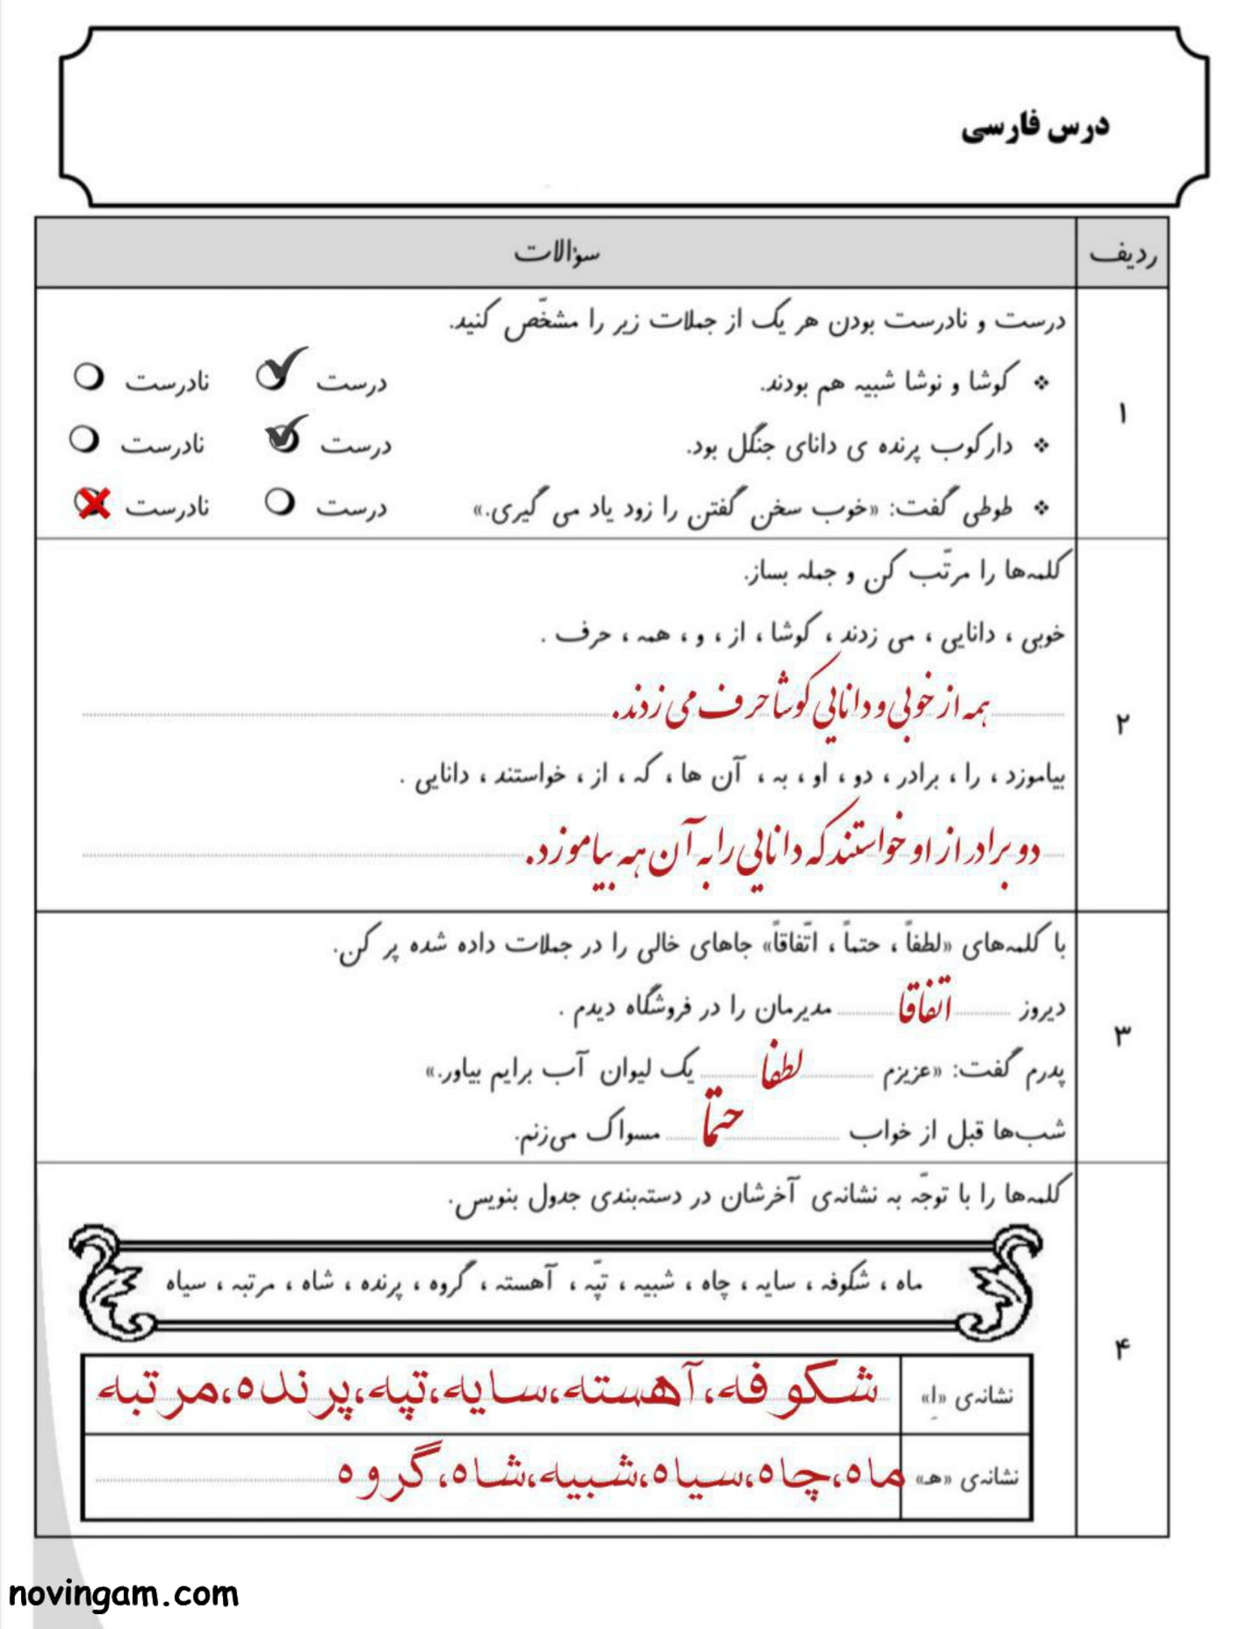 درس فارسی
ردیف سؤالات
۱ درست و نادرست بودن هر یک از جملات زیر را مشخّص کنید.
❖ کوشا و نوشا شبیه هم بودند. درست نادرست
❖ دارکوب پرنده ی دانای جنگل بود. درست نادرست
❖ طوطی گفت: «خوب سخن گفتن را زود یاد می گیری.» درست نادرست
کلمه‌ها را مرتّب کن و جمله بساز.
خوبی ، دانایی ، می زدند ، کوشا ، از ، و ، همه ، حرف .
۲ همه از خوبی و دانایی کوشا حرف می زدند.
بیاموزد ، را ، برادر ، دو ، او ، به ، آن ها ، که ، از ، خواستند ، دانایی .
دو برادر از او خواستند که دانایی را به آن هه بیاموزد.
با کلمه‌های «لطفاً ، حتماً ، اتّفاقاً» جاهای خالی را در جملات داده شده پر کن.
۳ دیروز اتفاقا مدیرمان را در فروشگاه دیدم .
پدرم گفت: «عزیزم لطفا یک لیوان آب برایم بیاور.»
شب‌ها قبل از خواب حتما مسواک می‌زنم.
کلمه‌ها را با توجّه به نشانه‌ی آخرشان در دسته‌بندی جدول بنویس.
ماه ، شکوفه ، سایه ، چاه ، شبیه ، تپّه ، آهسته ، گروه ، پرنده ، شاه ، مرتبه ، سیاه
۴ نشانه‌ی «اِ» شکوفه،آهسته،سایه،تپه،پرنده،مرتبه
نشانه‌ی «هـ» ماه،چاه،سیاه،شبیه،شاه،گروه
novingam.com